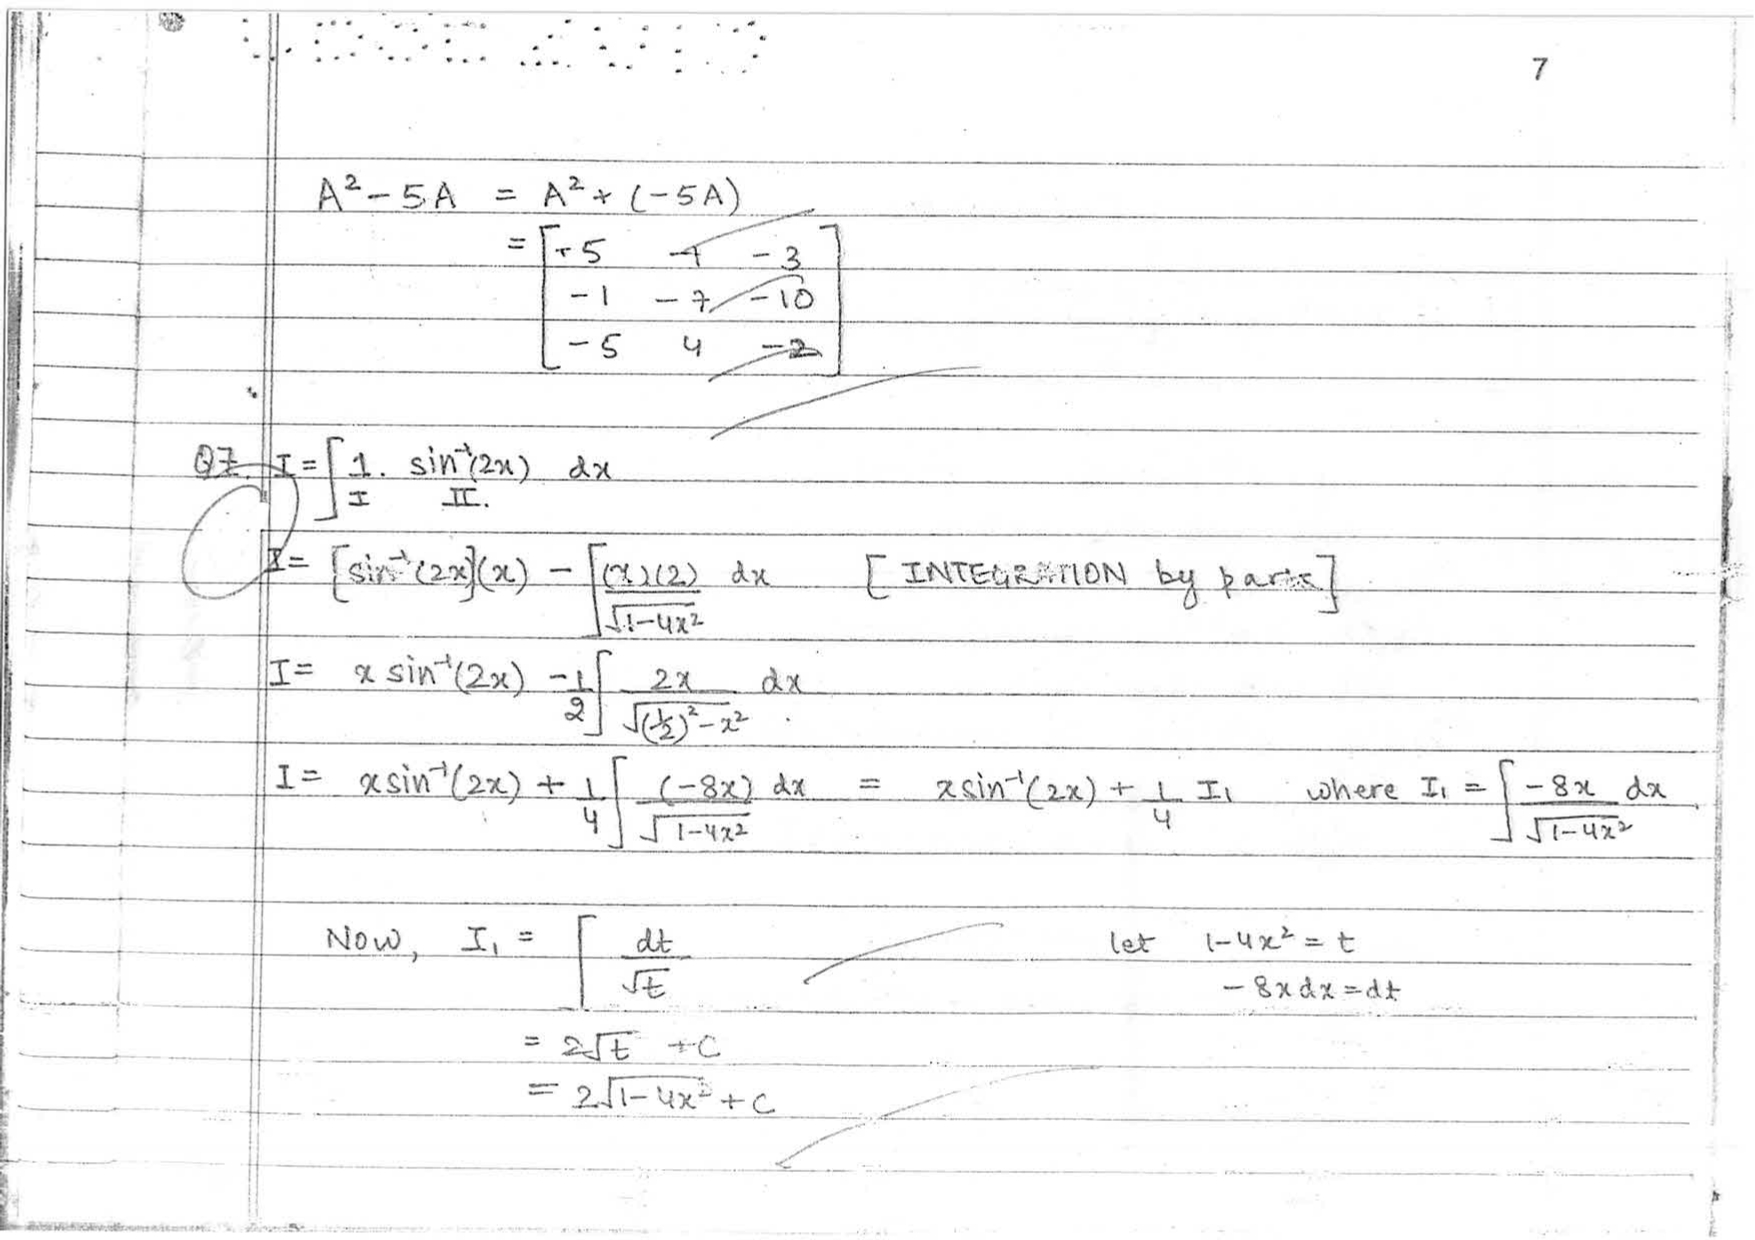 7
A² - 5A = A² + (-5A)
= [ +5 -1 -3
-1 -7 -10
-5 4 -2 ]
Q7. I = ∫ 1. sin⁻¹(2x) dx
I II.
I = [sin⁻¹(2x)](x) - ∫ (x)(2)/√(1-4x²) dx [INTEGRATION by parts]
I = x sin⁻¹(2x) - 1/2 ∫ 2x/√((1/2)² - x²) dx
I = x sin⁻¹(2x) + 1/4 ∫ (-8x) dx/√(1-4x²) = x sin⁻¹(2x) + 1/4 I₁ where I₁ = ∫ -8x dx/√(1-4x²)
Now, I₁ = ∫ dt/√t let 1-4x² = t
-8x dx = dt
= 2√t + C
= 2√(1-4x²) + C